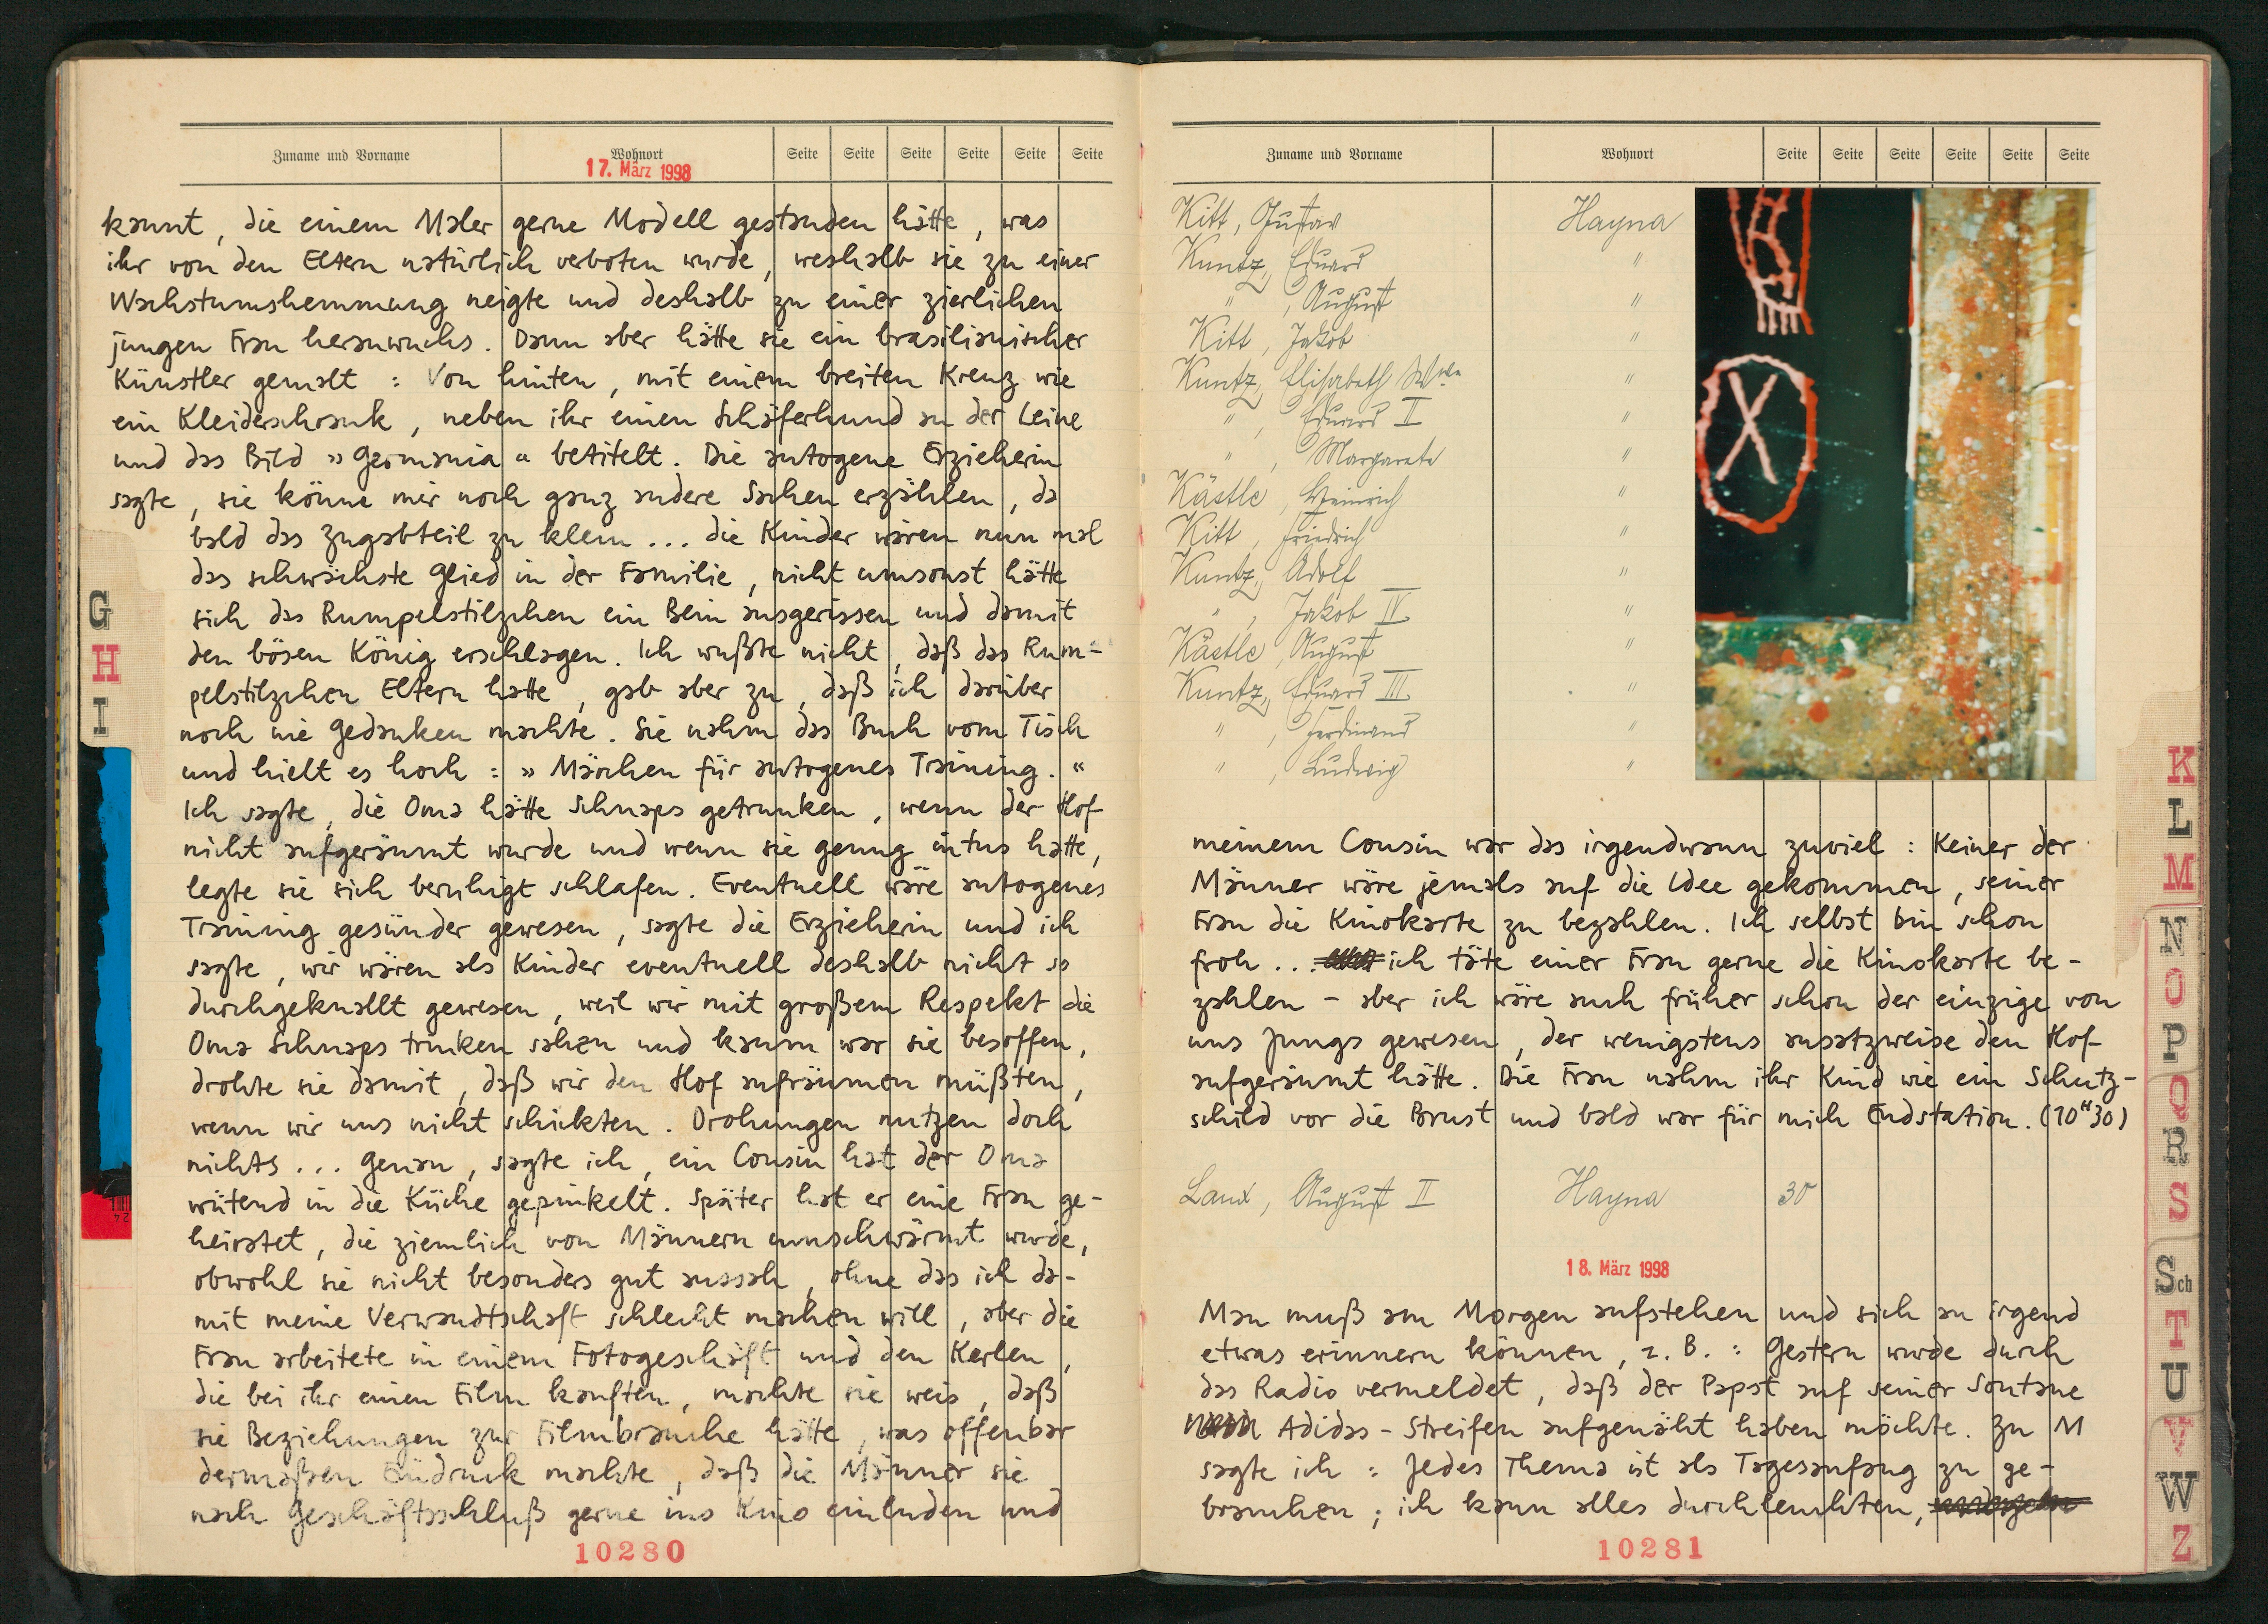 Zuname und Vorname Wohnort Seite Seite Seite Seite Seite Seite
17. März 1998
kannt, die einem Maler gerne Modell gestanden hätte, was
ihr von den Eltern natürlich verboten wurde, weshalb sie zu einer
Wachstumshemmung neigte und deshalb zu einer zierlichen
jungen Frau heranwuchs. Dann aber hätte sie ein brasilianischer
Künstler gemalt: Von hinten, mit einem breiten Kreuz wie
ein Kleiderschrank, neben ihr einen Schäferhund an der Leine
und das Bild »Germania« betitelt. Die autogene Erzieherin
sagte, sie könne mir noch ganz andere Sachen erzählen, da
bald das Zugabteil zu klein... die Kinder wären nun mal
das schwächste Glied in der Familie, nicht umsonst hätte
sich das Rumpelstilzchen ein Bein ausgerissen und damit
den bösen König erschlagen. Ich wußte nicht, daß das Rum=
pelstilzchen Eltern hatte, gab aber zu, daß ich darüber
noch nie Gedanken machte. Sie nahm das Buch vom Tisch
und hielt es hoch: »Märchen für autogenes Training.«
Ich sagte, die Oma hätte Schnaps getrunken, wenn der Hof
nicht aufgeräumt wurde und wenn sie genug intus hatte,
legte sie sich beruhigt schlafen. Eventuell wäre autogenes
Training gesünder gewesen, sagte die Erzieherin und ich
sagte, wir wären als Kinder eventuell deshalb nicht so
durchgeknallt gewesen, weil wir mit großem Respekt die
Oma Schnaps trinken sahen und kaum war sie besoffen,
drohte sie damit, daß wir den Hof aufräumen müßten,
wenn wir uns nicht schickten. Drohungen nutzen doch
nichts... Genau, sagte ich, ein Cousin hat der Oma
wütend in die Küche gepinkelt. Später hat er eine Frau ge-
heiratet, die ziemlich von Männern umschwärmt wurde,
obwohl sie nicht besonders gut aussah, ohne das ich da-
mit meine Verwandtschaft schlecht machen will, aber die
Frau arbeitete in einem Fotogeschäft und den Kerlen,
die bei ihr einen Film kauften, machte sie weis, daß
sie Beziehungen zur Filmbranche hätte, was offenbar
dermaßen Eindruck machte, daß die Männer sie
nach Geschäftsschluß gerne ins Kino einluden und
10280
G
H
I
Zuname und Vorname Wohnort Seite Seite Seite Seite Seite Seite
Kitt, Gustav Hayna
Kuntz, Eduard "
" , August "
Kitt, Jakob "
Kuntz, Elisabeth Wwe "
" , Eduard II "
" , Margarete "
Kästle, Heinrich "
Kitt, Friedrich "
Kuntz, Adolf "
" , Jakob IV "
Kästle, August "
Kuntz, Eduard III "
" , Ferdinand "
" , Ludwig "
meinem Cousin war das irgendwann zuviel: Keiner der
Männer wäre jemals auf die Idee gekommen, seiner
Frau die Kinokarte zu bezahlen. Ich selbst bin schon
froh... ich täte einer Frau gerne die Kinokarte be-
zahlen - aber ich wäre auch früher schon der einzige von
uns Jungs gewesen, der wenigstens ansatzweise den Hof
aufgeräumt hätte. Die Frau nahm ihr Kind wie ein Schutz-
schild vor die Brust und bald war für mich Endstation. (10H30)
Laux, August II Hayna 30
18. März 1998
Man muß am Morgen aufstehen und sich an irgend
etwas erinnern können, z. B.: Gestern wurde durch
das Radio vermeldet, daß der Papst auf seiner Soutane
Adidas-Streifen aufgenäht haben möchte. Zu M
sagte ich: Jedes Thema ist als Tagesanfang zu ge-
brauchen; ich kann alles durchleuchten,
10281
K
L
M
N
O
P
Q
R
S
Sch
T
U
V
W
Z